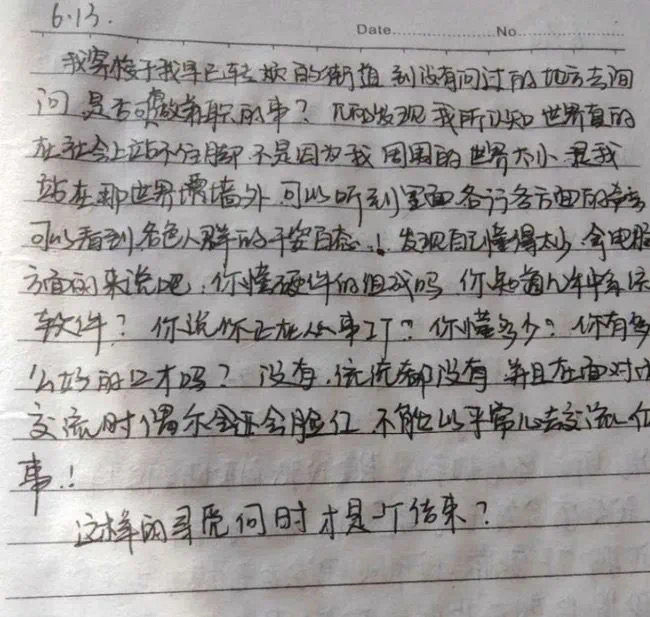 6.13.
Date No
我穿梭于我早已转 的街道 到没有问过的地方去询
问 是否可 做兼职的事? 发现我所认知世界真的
在社会上站不住脚 不是因为我周围的世界太小 是我
站在那世界 墙外 可以听到里面各行各方面的
可以看到各色人群的千姿百态.! 发现自己懂得太少 拿电脑
方面的来说吧. 你懂硬件的组成吗 你知道几年
软件? 你说你正在从事IT? 你懂多少? 你有多
么好的口才吗? 没有.统统都没有 并且在面对
交流时偶尔 还会脸红 不能以平常心去交流一
事.!
这样的寻觅何时才是个结束?